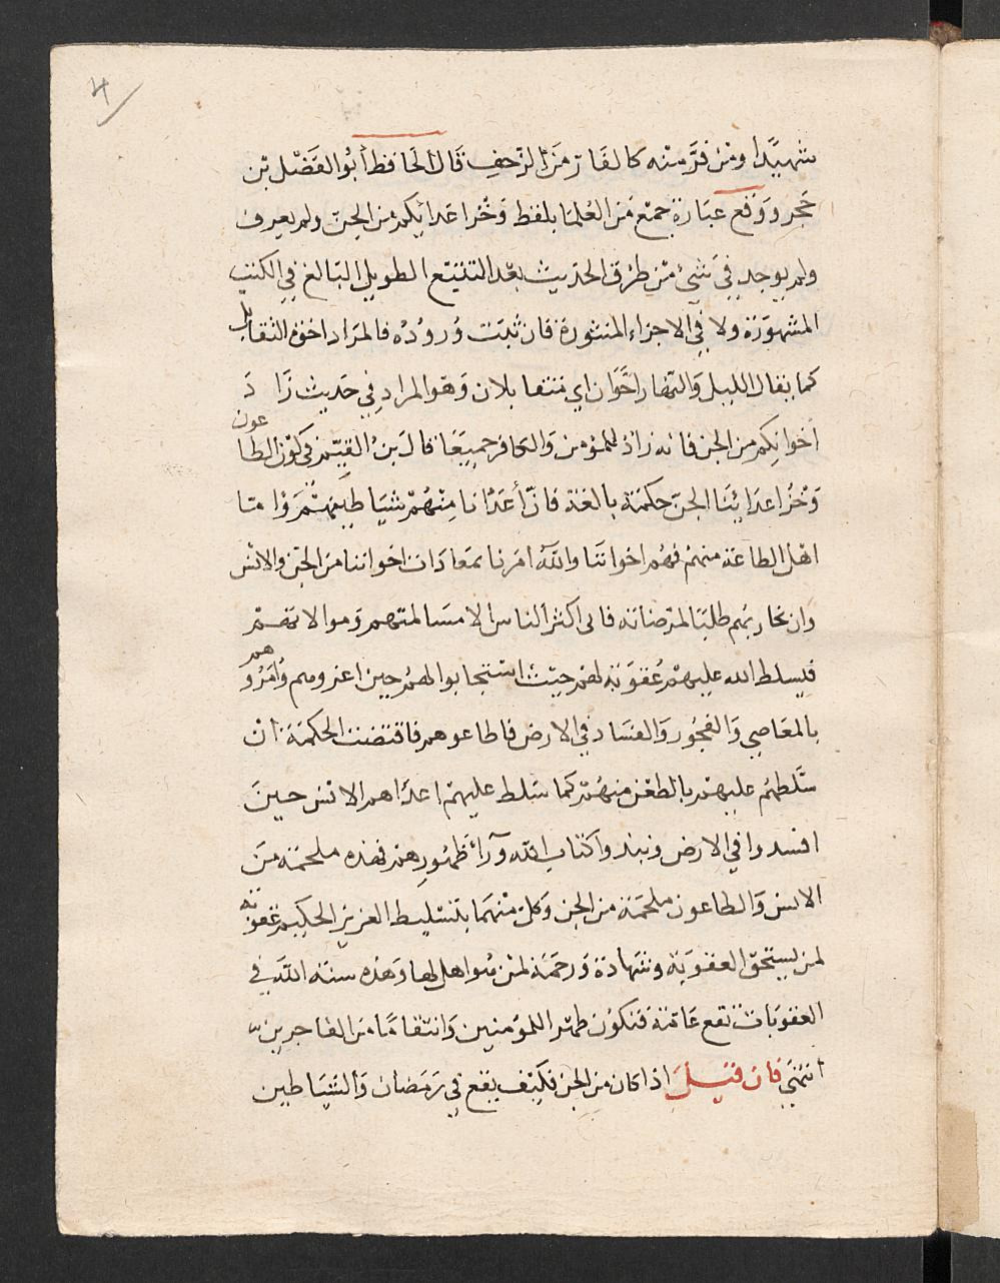 ٤
شهيدا ومن فر منه كالفار من الزحف قال الحافظ أبو الفضل بن
حجر ووقع عبارة جمع من العلما بلفظ وخز اعدائكم من الجن ولم يعرف
ولم يوجد في شيء من طرق الحديث بعد التتبع الطويل البالغ في الكتب
المشهورة ولا في الاجزاء المنثورة فان ثبت وروده فالمراد اخوة التقابل
كما يقال الليل والنهار اخوان اي متقابلان وهو المراد في حديث زاد
اخوانكم من الجن فانه زاد للمومن والكافر جميعا قال بن القيم في كون الطاعون
وخز اعدائنا الجن حكمة بالغة فان أعدانا منهم شياطينهم واما
اهل الطاعة منهم فهم اخواننا والله امرنا بمعادات اخواننا من الجن والانس
وان نحاربهم طلبا لمرضاته فابى اكثر الناس الا مسالمتهم وموالاتهم
فيسلط الله عليهم عقوبة لهم حيث استجابوا لهم حين اغروهم وامروهم
بالمعاصي والفجور والفساد في الارض فاطاعوهم فاقتضت الحكمة ان
سلطهم عليهم بالطعن منهم كما سلط عليهم اعداهم الانس حين
افسدوا في الارض ونبذوا كتاب الله ورآ ظهورهم فهذه ملحمة من
الانس والطاعون ملحمة من الجن وكل منهما بتسليط العزيز الحكيم عقوبة
لمن يستحق العقوبة وشهادة ورحمة لمن هو اهل لها وهذه سنة الله في
العقوبات تقع عامة فتكون طهرا للمومنين وانتقاما من الفاجرين
انتهى فان قيل اذا كان من الجن فكيف يقع في رمضان والشياطين